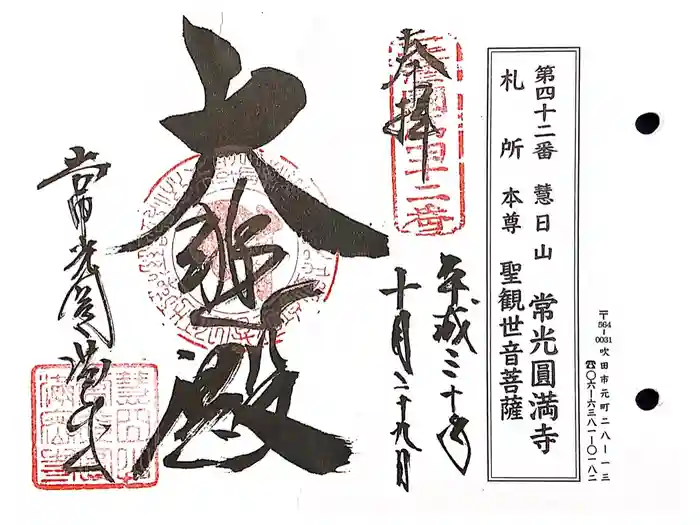 第四十二番 慧日山 常光圓満寺
札所 本尊 聖観世音菩薩
〒564-0031 吹田市元町二八ー一三
☎〇六ー六三八一ー〇一八二
奉拝
平成三十年
十月二十九日
大悲殿
常光圓満寺